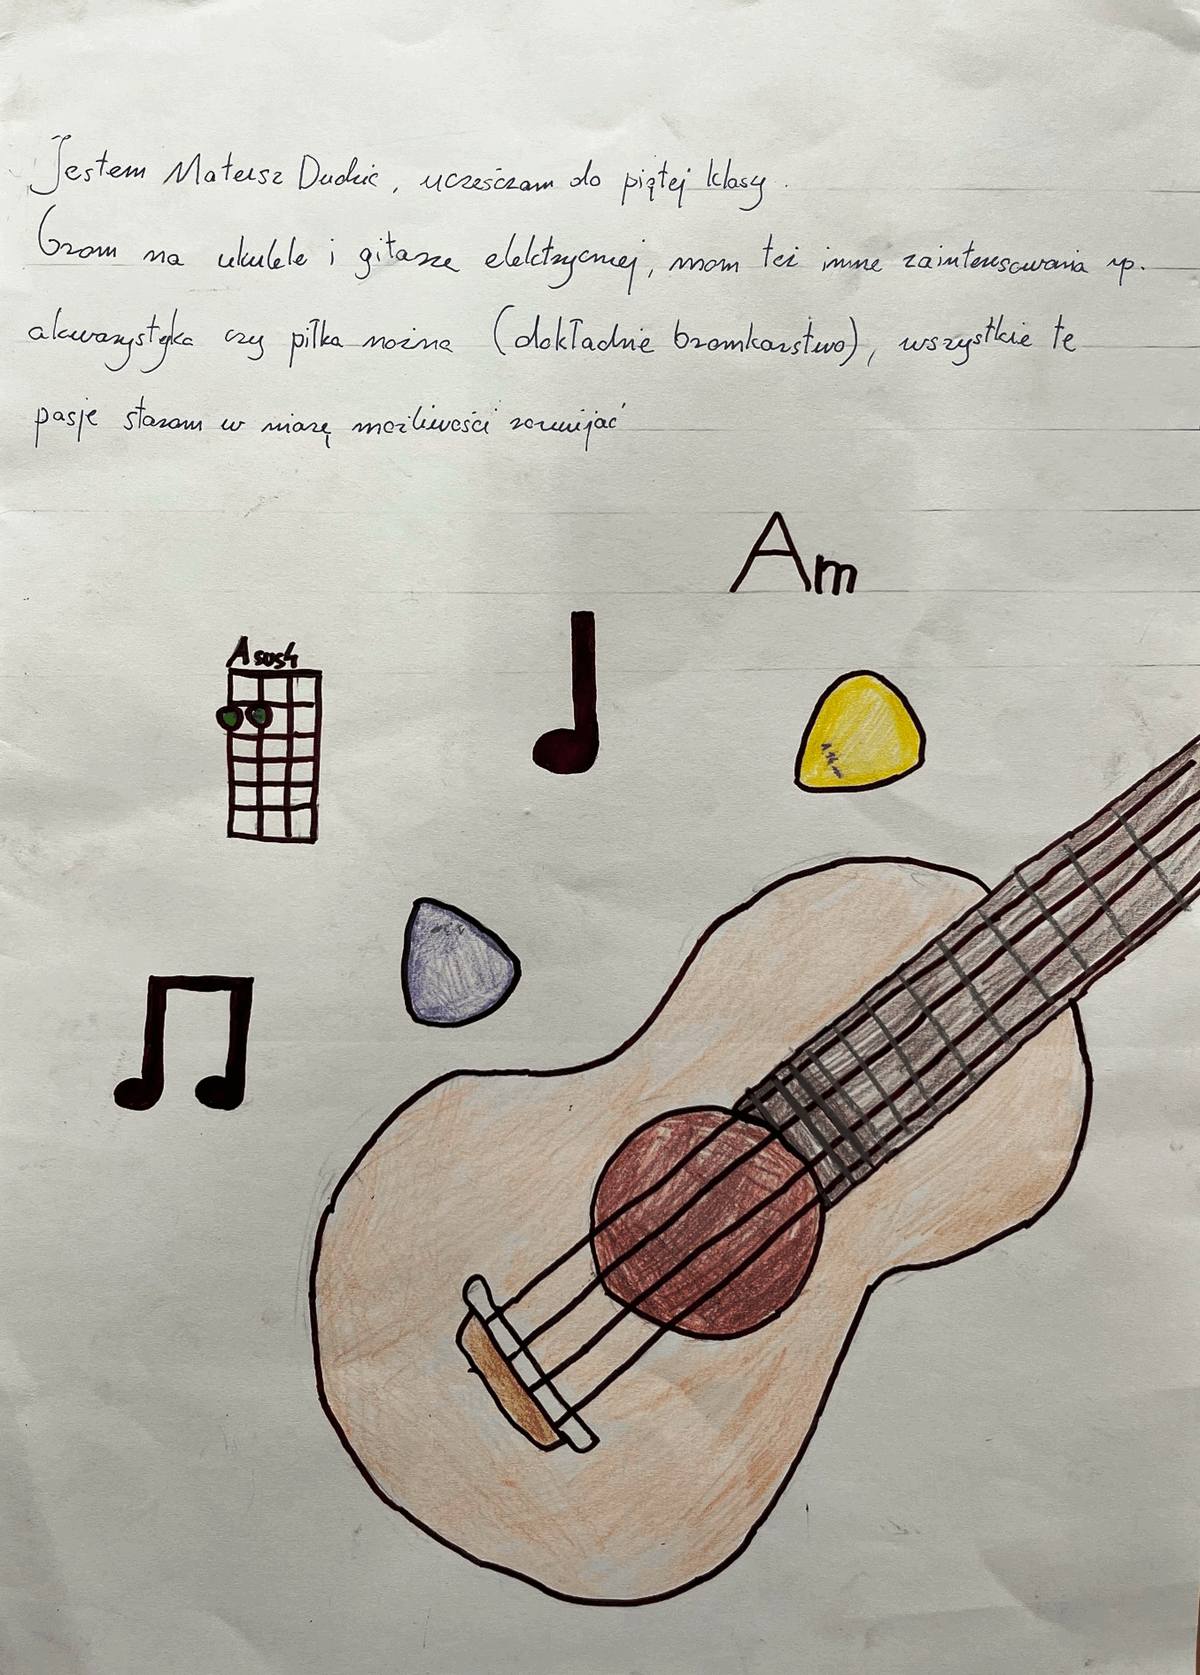 Jestem Mateusz Dudzic, uczęsczam do piątej klasy.
Gram na ukulele i gitarze elektrycznej, mam też inne zainteresowania np.
akwarystyka czy piłka nożna (dokładnie bramkarstwo), wszystkie te
pasje staram w miarę możliwości rozwijać
Am
Asus4